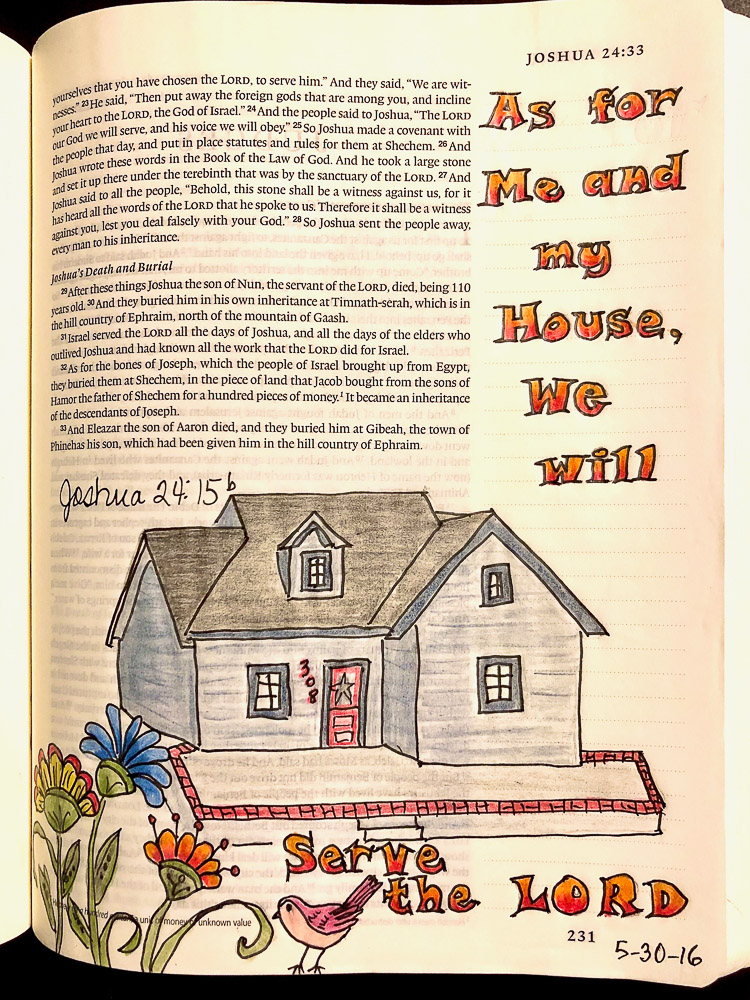 JOSHUA 24:33
yourselves that you have chosen the LORD, to serve him.” And they said, “We are wit-
nesses.” 23He said, “Then put away the foreign gods that are among you, and incline
your heart to the LORD, the God of Israel.” 24And the people said to Joshua, “The LORD
our God we will serve, and his voice we will obey.” 25So Joshua made a covenant with
the people that day, and put in place statutes and rules for them at Shechem. 26And
Joshua wrote these words in the Book of the Law of God. And he took a large stone
and set it up there under the terebinth that was by the sanctuary of the LORD. 27And
Joshua said to all the people, “Behold, this stone shall be a witness against us, for it
has heard all the words of the LORD that he spoke to us. Therefore it shall be a witness
against you, lest you deal falsely with your God.” 28So Joshua sent the people away,
every man to his inheritance.
Joshua's Death and Burial
29After these things Joshua the son of Nun, the servant of the LORD, died, being 110
years old. 30And they buried him in his own inheritance at Timnath-serah, which is in
the hill country of Ephraim, north of the mountain of Gaash.
31Israel served the LORD all the days of Joshua, and all the days of the elders who
outlived Joshua and had known all the work that the LORD did for Israel.
32As for the bones of Joseph, which the people of Israel brought up from Egypt,
they buried them at Shechem, in the piece of land that Jacob bought from the sons of
Hamor the father of Shechem for a hundred pieces of money.1 It became an inheritance
of the descendants of Joseph.
33And Eleazar the son of Aaron died, and they buried him at Gibeah, the town of
Phinehas his son, which had been given him in the hill country of Ephraim.
As for
Me and
my
House,
We
will
Joshua 24:15b
308
Serve
the LORD
hundred a unit of money of unknown value
231
5-30-16